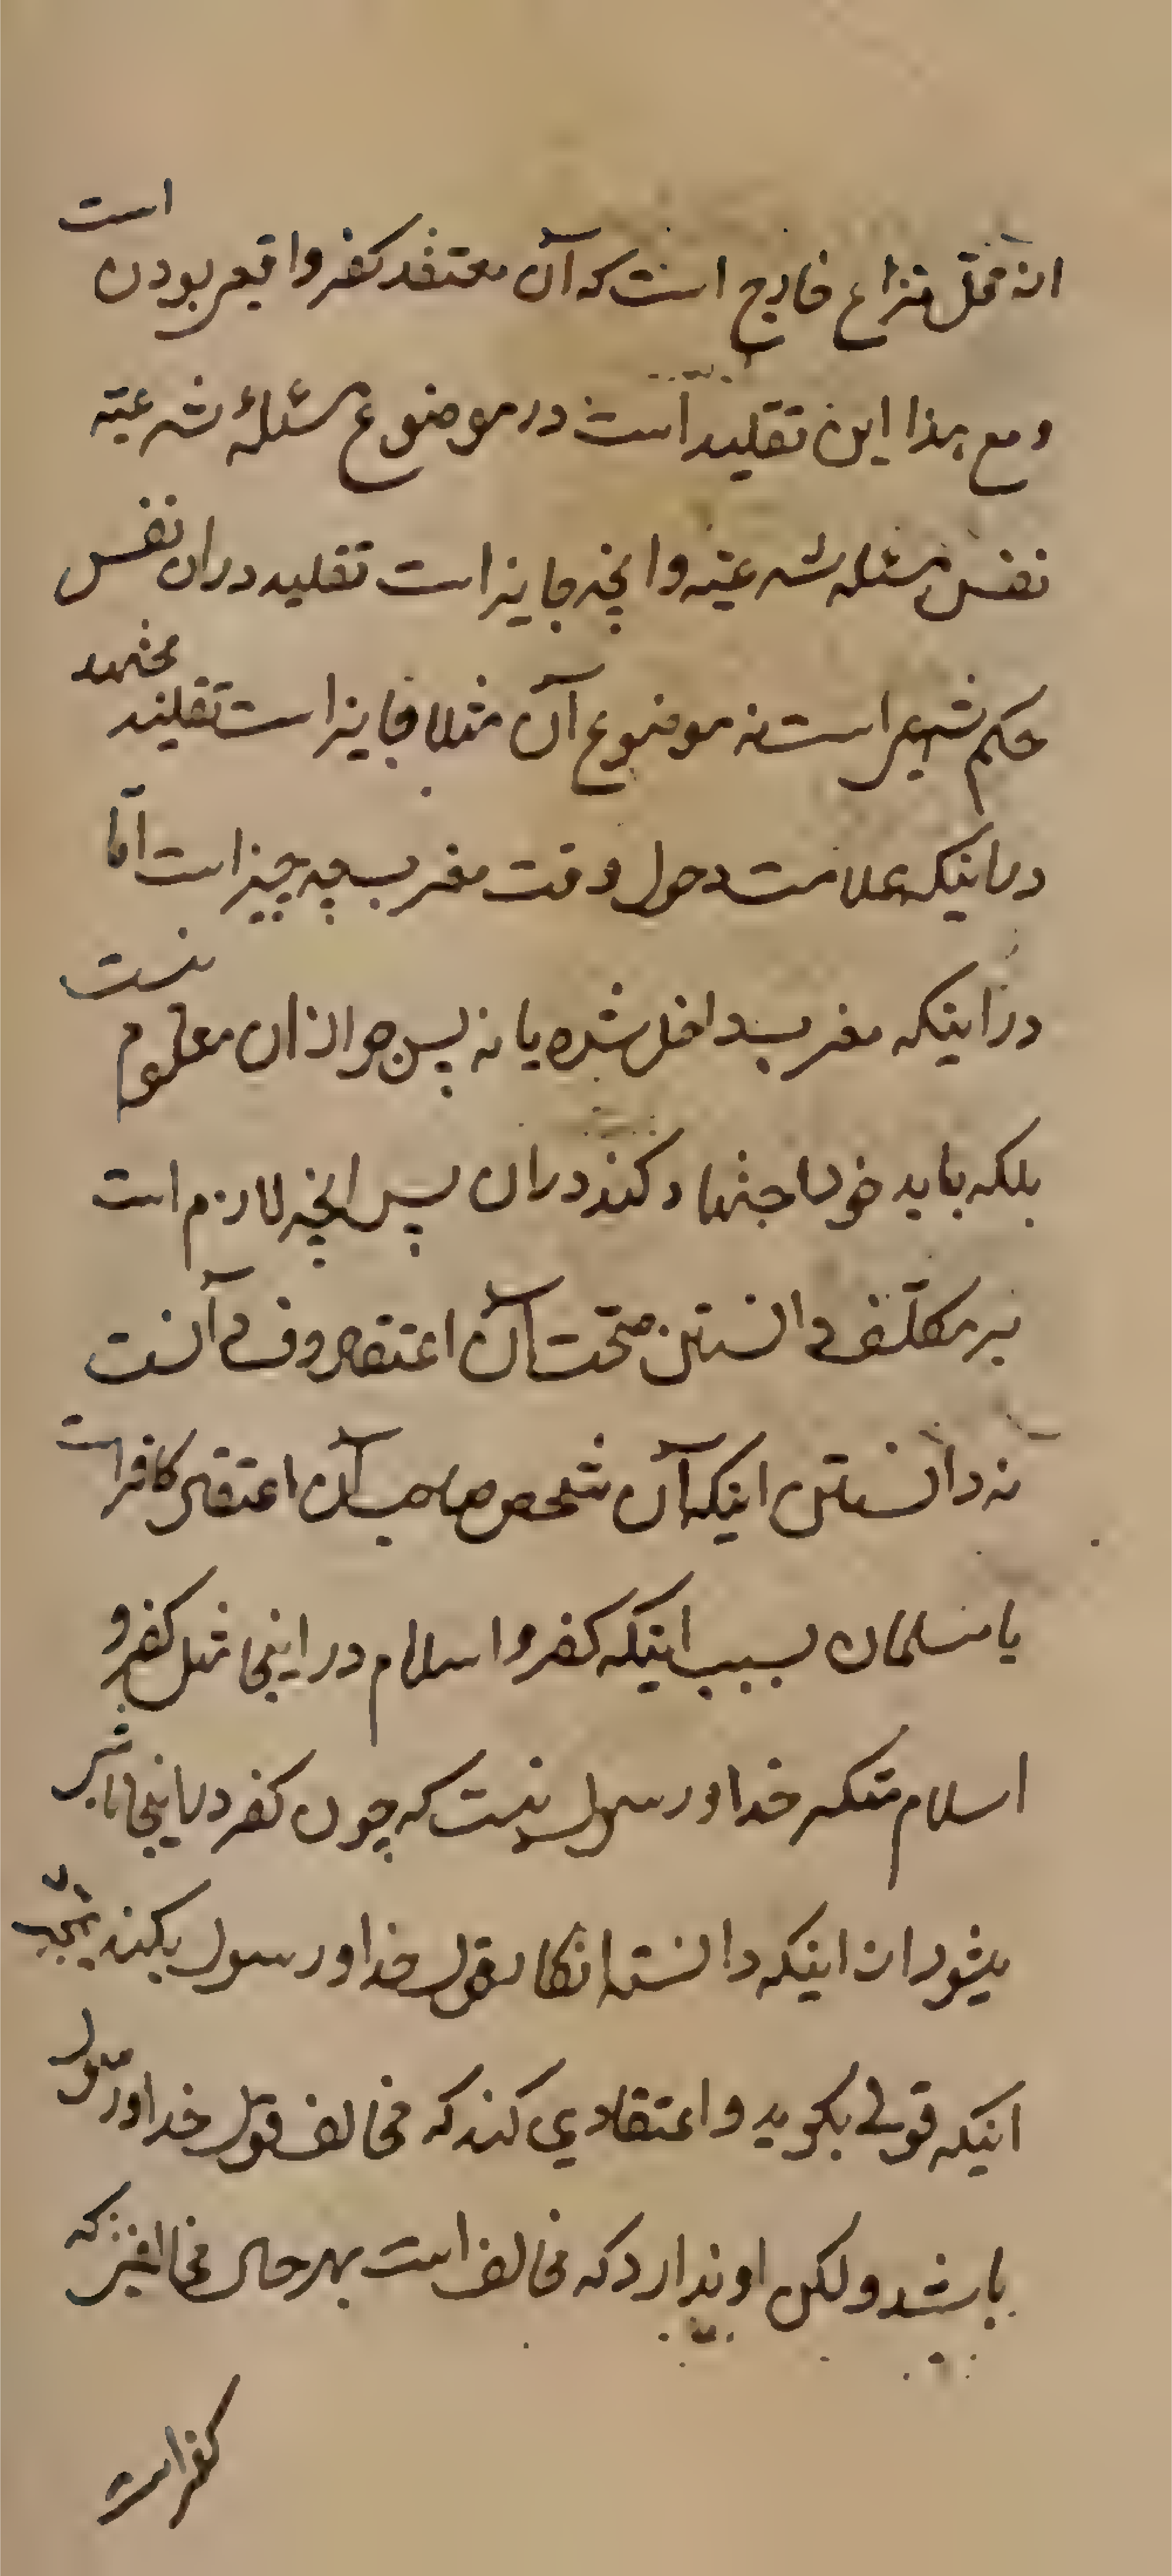 از محل نزاع خارج است که آن معتقد کفر واقعی بودن است
و مع هذا این تقلید است در موضوع مسئلهٔ شرعیّه
نفس مسئله شرعیّه و انچه جایز است تقلید دران نفس
حکم شرعی است نه موضوع آن مثلا جایز است تقلید مجتهد
در اینکه علامت دخول وقت مغرب چه چیز است امّا
در اینکه مغرب داخل شده یا نه پس جواز ان معلوم نیست
بلکه باید خود اجتهاد کند دران پس انچه لازم است
بر مکلّف دانستن صحّت آن اعتقاد و فساد آنست
نه دانستن اینکه آن شخص صاحب آن اعتقاد کافر است
یا مسلمان بسبب اینکه کفر و اسلام در اینجا مثل کفر و
اسلام منکر خدا و رسول نیست که چون کفر در اینجا ناشی
میشود از اینکه دانسته انکار قول خدا و رسول بکند
اینکه قولی بگوید و اعتقادی کند که مخالف قول خدا و رسول
باشد و لکن او نداند که مخالف است بهر حال که
کفر است